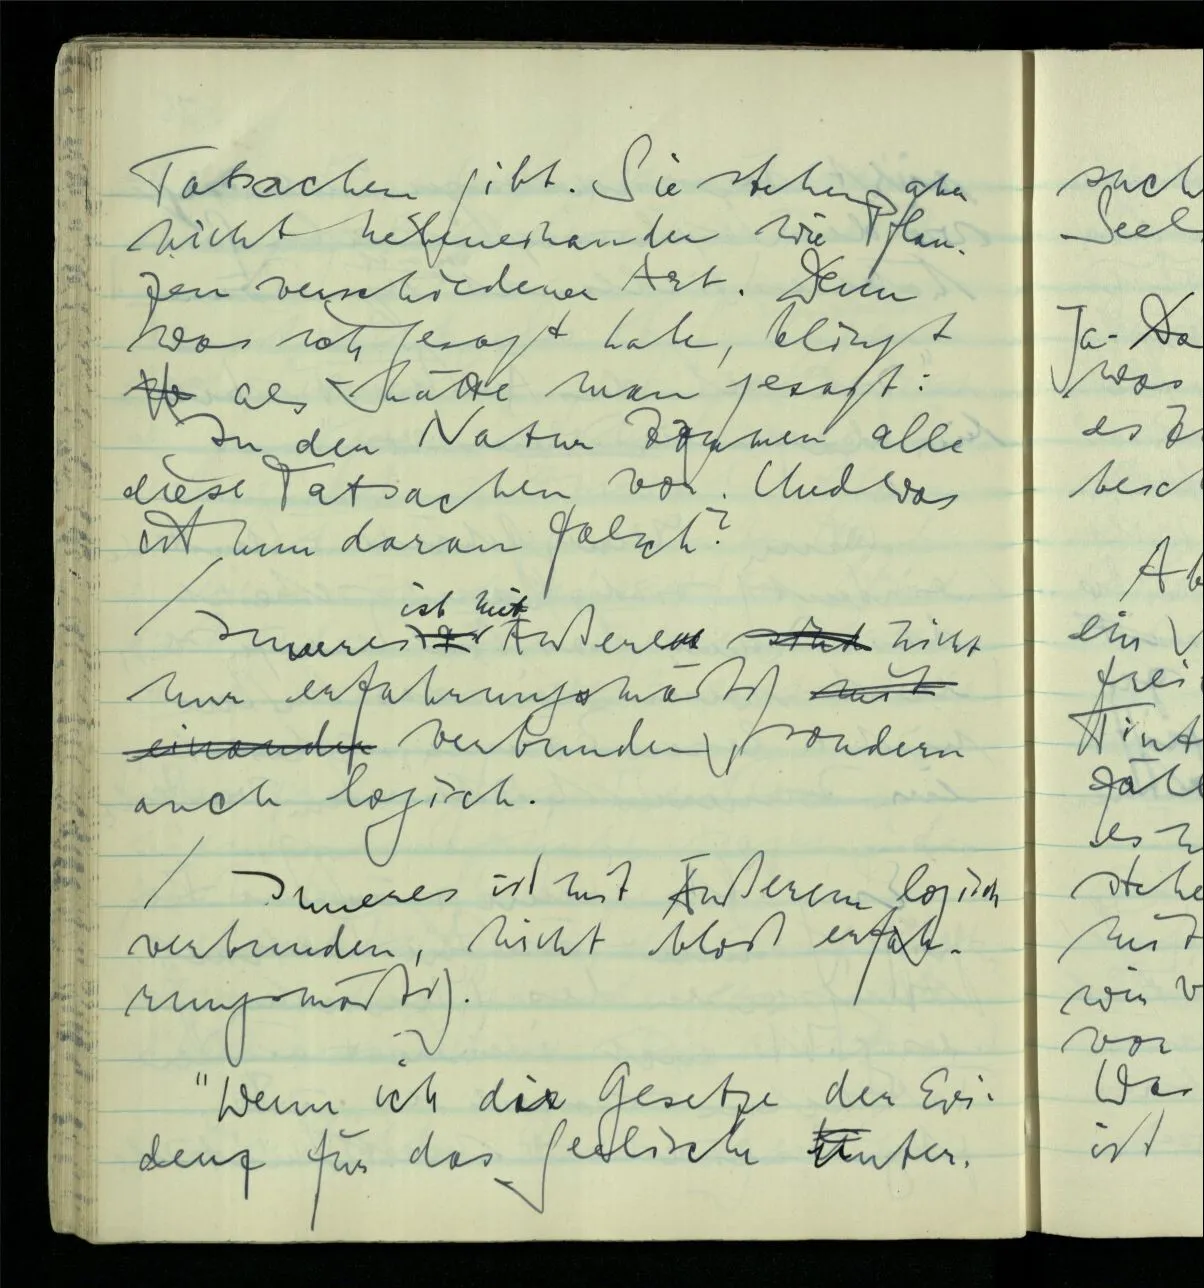 Tatsachen gibt. Sie stehen aber
nicht nebeneinander wie Pflan-
zen verschiedener Art. Denn
was ich gesagt habe, klingt
als hätte man gesagt:
"In der Natur kommen alle
diese Tatsachen vor. Und was
ist nun daran falsch?
/
ist mit
Inneres Äußerem sind nicht
nur erfahrungsmäßig mit
einander verbunden, sondern
auch logisch.
/ Inneres ist mit Äußerem logisch
verbunden, nicht bloß erfah-
rungsmäßig.
"Wenn ich die Gesetze der Evi-
denz für das Seelische unter-
such
Seel
Ja- Da
was
es
besch
Ab
ein
frei
Tint
es
stehe
mit
wir v
vor
Was
ist